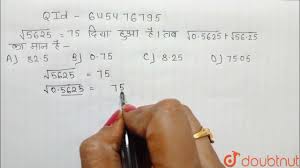 QId - 645476795
√5625 = 75 दिया हुआ है। तब √0.5625 + √56.25
का मान है -
A) 82.5 B) 0.75 C) 8.25 D) 75.05
√5625 = 75
√0.5625 = 75
doubtnut